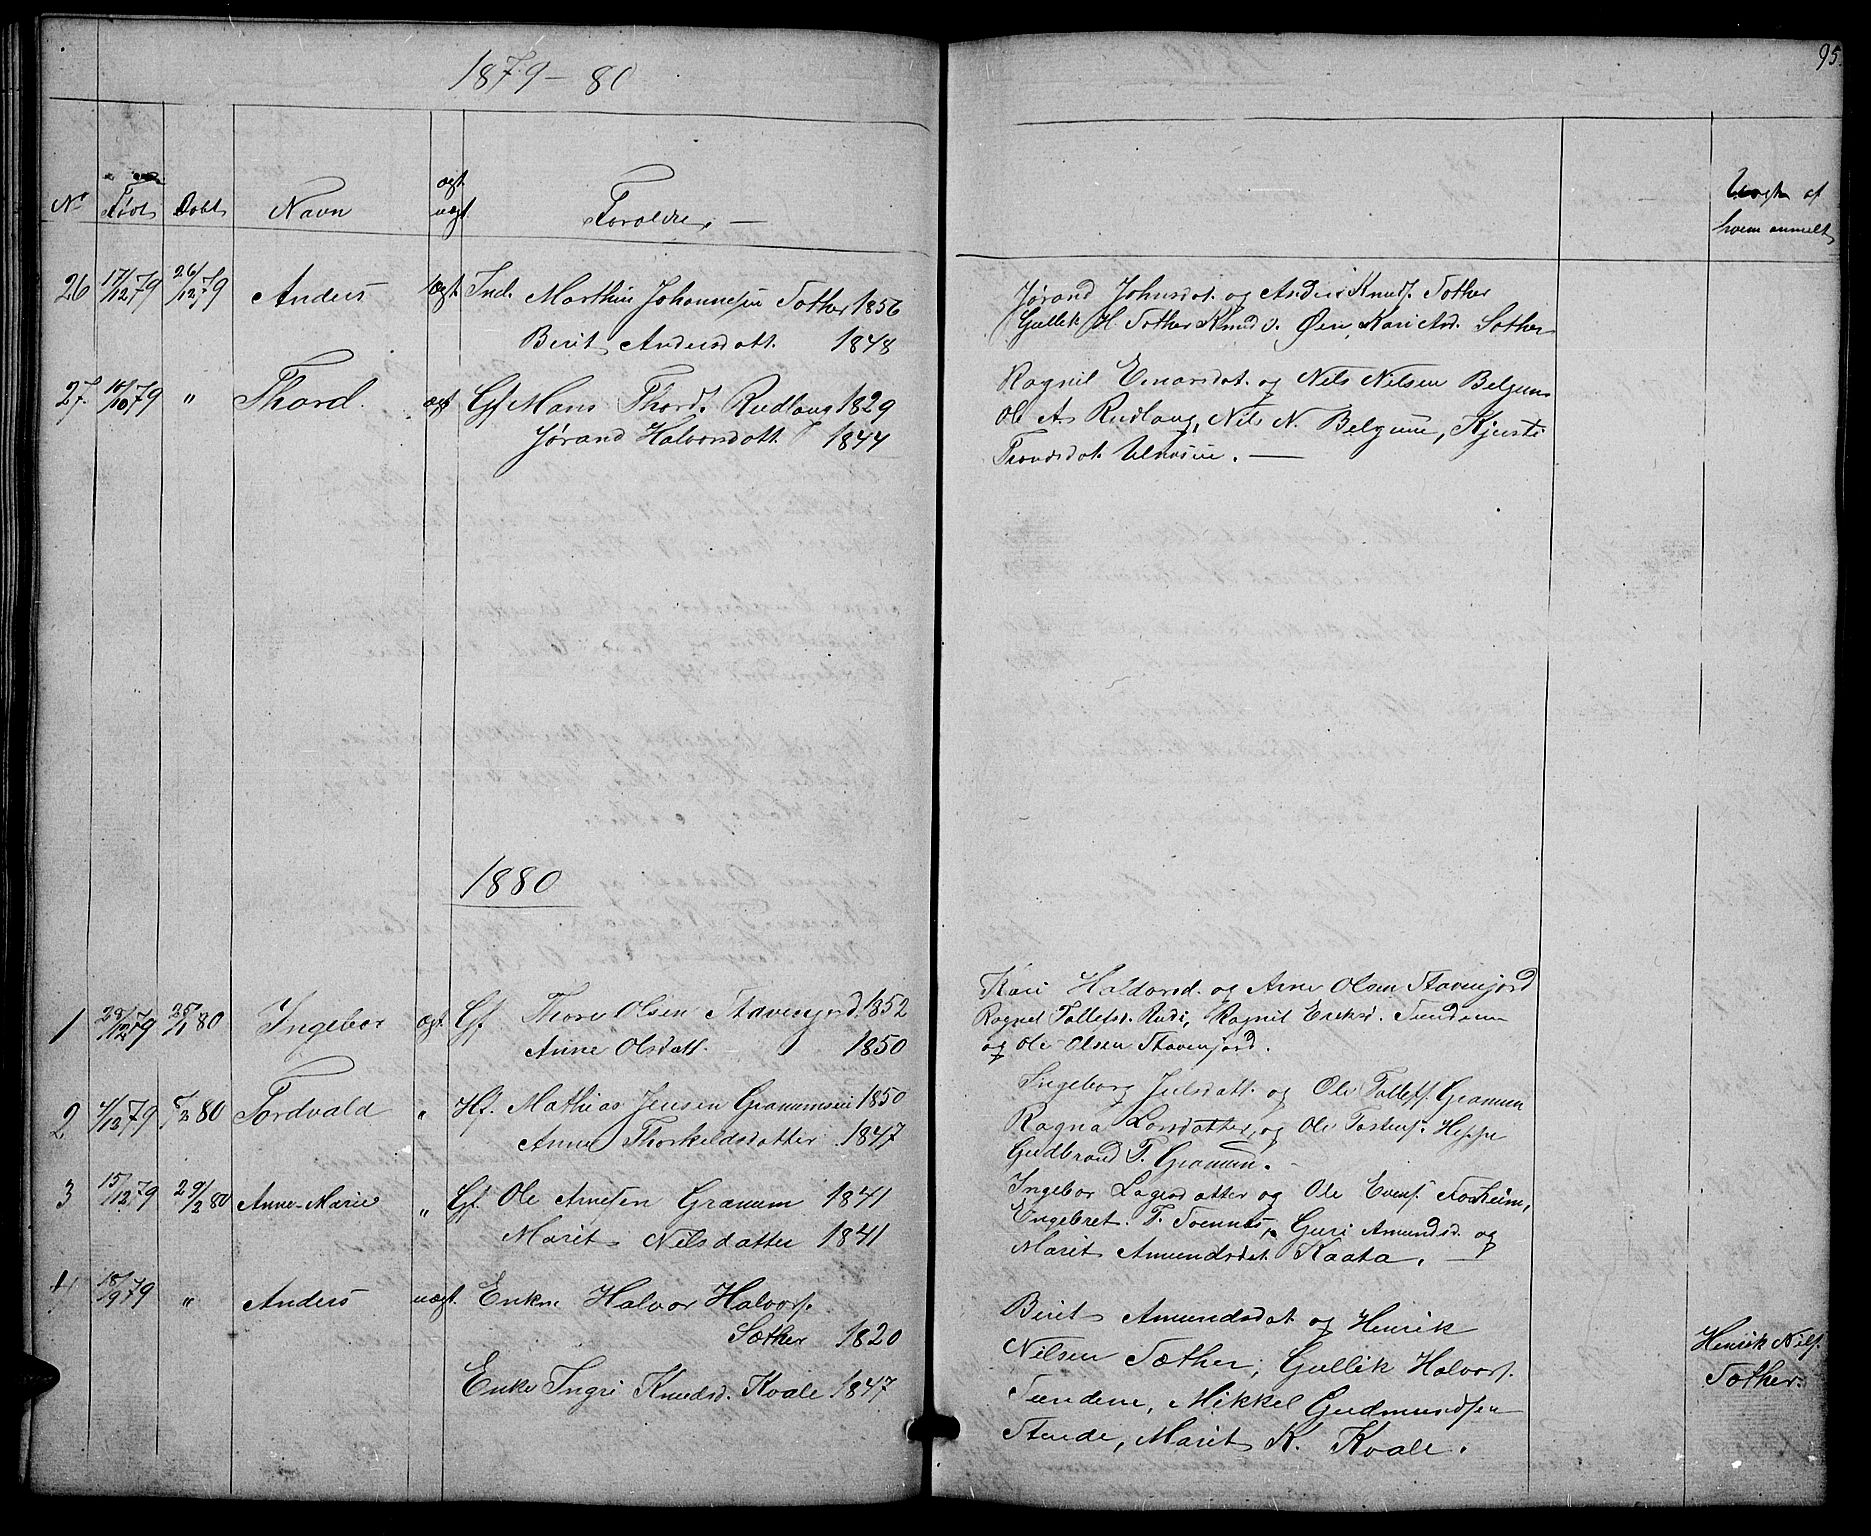 1879-80
95.
No Født Døbt Navn ægt uægt Forældre. —
Uægte af hvem anmeldt
26 17/12 79 26/12 79 Anders ægt. Ind. Marthin Johannesen Sæther 1856
Berit Andersdatt. 1848
Jørand Johnsdat. og Anders Knuds. Sæther
Gullik H. Sæther Knud O. Øen, Kari And. Sæther
27. 10/10 79 " Thord. ægt Gf Mons Thords. Rudlang 1829
Jørand Halvorsdatt. 1844
Ragnil Einarsdat. og Nils Nilsen Belgum
Ole A. Rudlang, Nils N. Belgum, Kjersti
Trondsdat. Ulnæsie. —
1880
1 29/12 79 25/1 80 Ingebor ægt. Gf. Thore Olsen Stavenjord 1852
Anne Olsdatt. — 1850
Kari Haldorsd. og Arne Olsen Stavenjord
Ragnil Tollefsd. Rudi, Ragnil Eriksd. Tundene
og Ole Olsen Stavenjord.
2 4/12 79 5/2 80 Tordvald " Hf. Mathias Jensen Granumseie 1850
Anne Thorkildsdatter 1847
Ingeborg Julsdatt. og Ole Tollefs. Granum
Ragna Larsdatter, og Ole Tostens. Heppe
Gudbrand T. Granum.
3 15/12 79 29/2 80 Anne-Marie " Gf. Ole Arnesen Granum 1841
Marit Nilsdatter 1841
Ingebor Lagesdatter og Ole Evens. Fosheim,
Engebret. T. Soennes, Guri Amundsd. og
Marit Amundsdat. Kaata. —
4 18/9 79 " Anders uægt. Enkm Halvor Halvors.
Sæther 1820
Enke Ingri Knudsd. Kvale 1847
Berit Amundsdat og Henrik
Nilsen Sæther, Gullik Halvors.
Tundene, Mikkel Gudmundsen
Stende, Marit K. Kvale.
Henrik Nils.
Sæther.